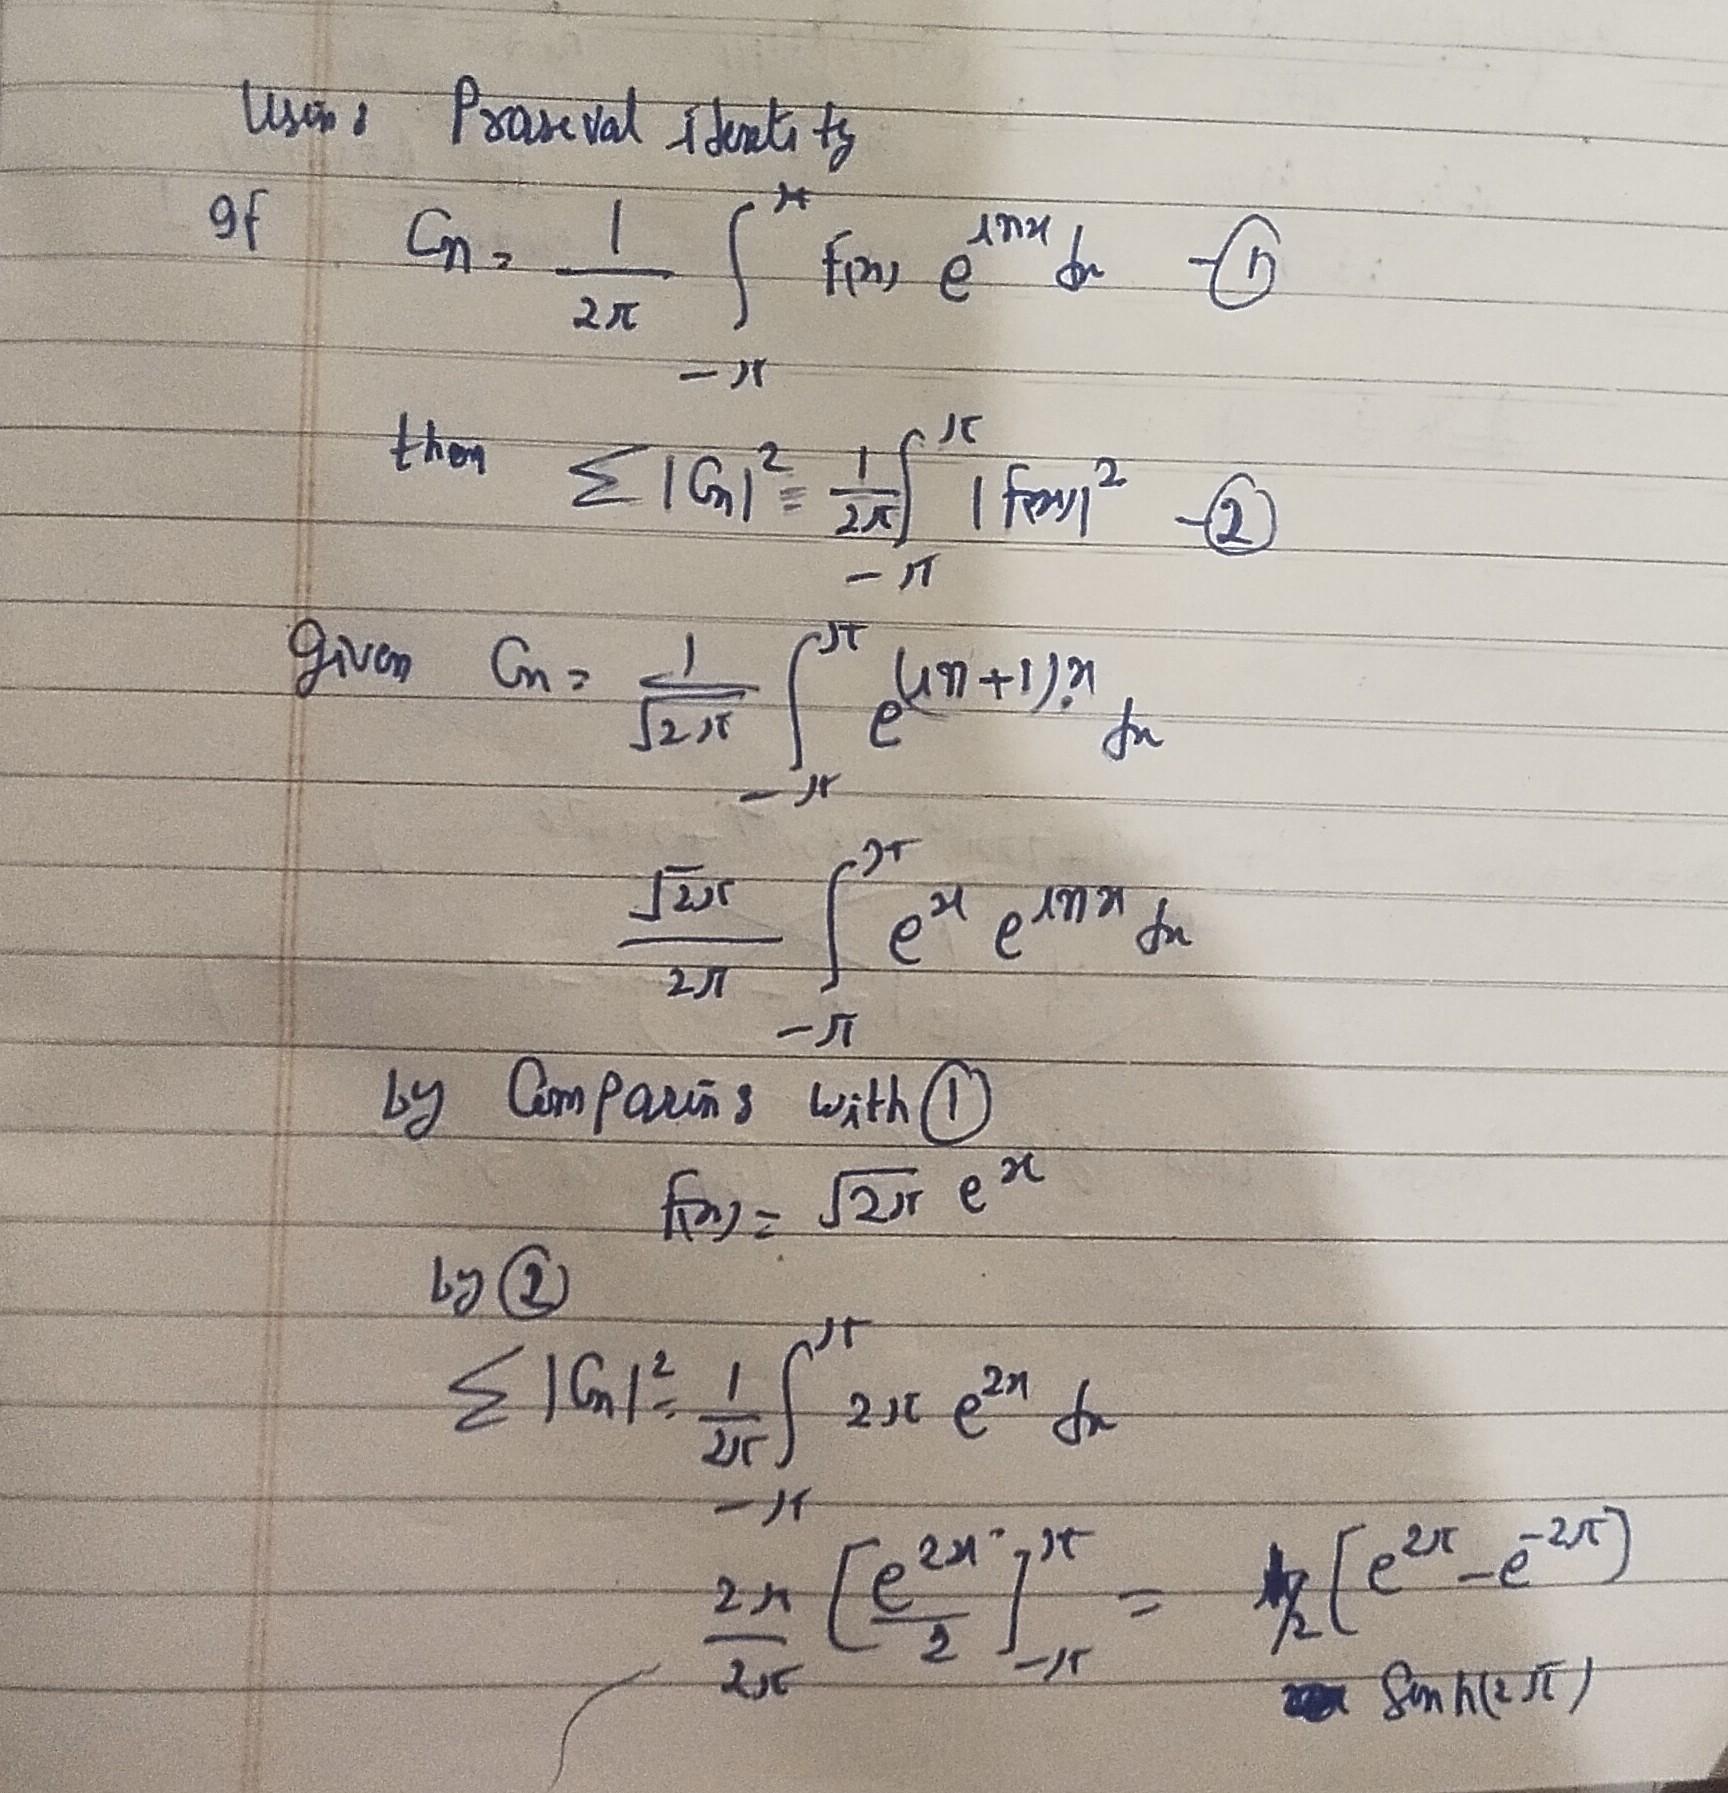 Using Praseval identity
If Cn = 1/2π ∫_{-π}^{π} f(x) e^{inx} dx -①
then Σ|Cn|² = 1/2π ∫_{-π}^{π} |f(x)|² -②
Given Cn = 1/√2π ∫_{-π}^{π} e^{(in+1)x} dx
√2π/2π ∫_{-π}^{π} e^x e^{inx} dx
by Comparing with ①
f(x) = √2π e^x
by ②
Σ|Cn|² = 1/2π ∫_{-π}^{π} 2π e^{2x} dx
2π/2π [e^{2x}/2]_{-π}^{π} = 1/2 [e^{2π} - e^{-2π}]
Sinh(2π)